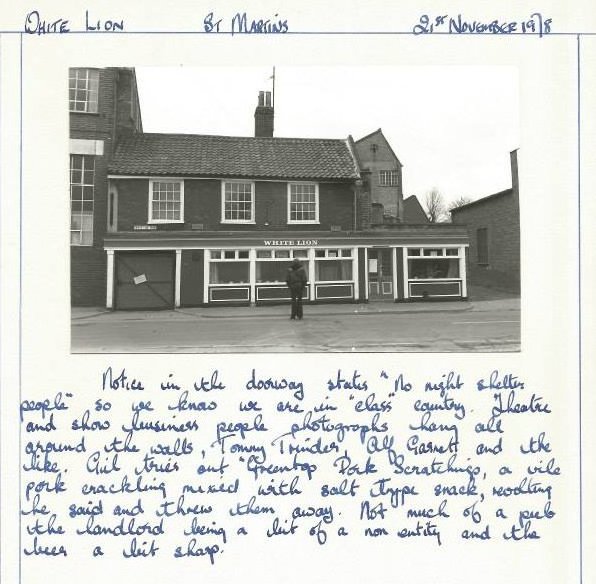 White Lion St Martins 21st November 1978
WHITE LION
Notice in the doorway states "No night shelter
people" so we know we are in "class" country. Theatre
and show business people photographs hang all
around the walls, Tommy Trinder, Alf Garnett and the
like. Gil tries out "Greentop Pork Scratchings, a vile
pork crackling mixed with salt type snack, revolting
he, said and threw them away. Not much of a pub
the landlord being a bit of a non entity and the
beer a bit sharp.